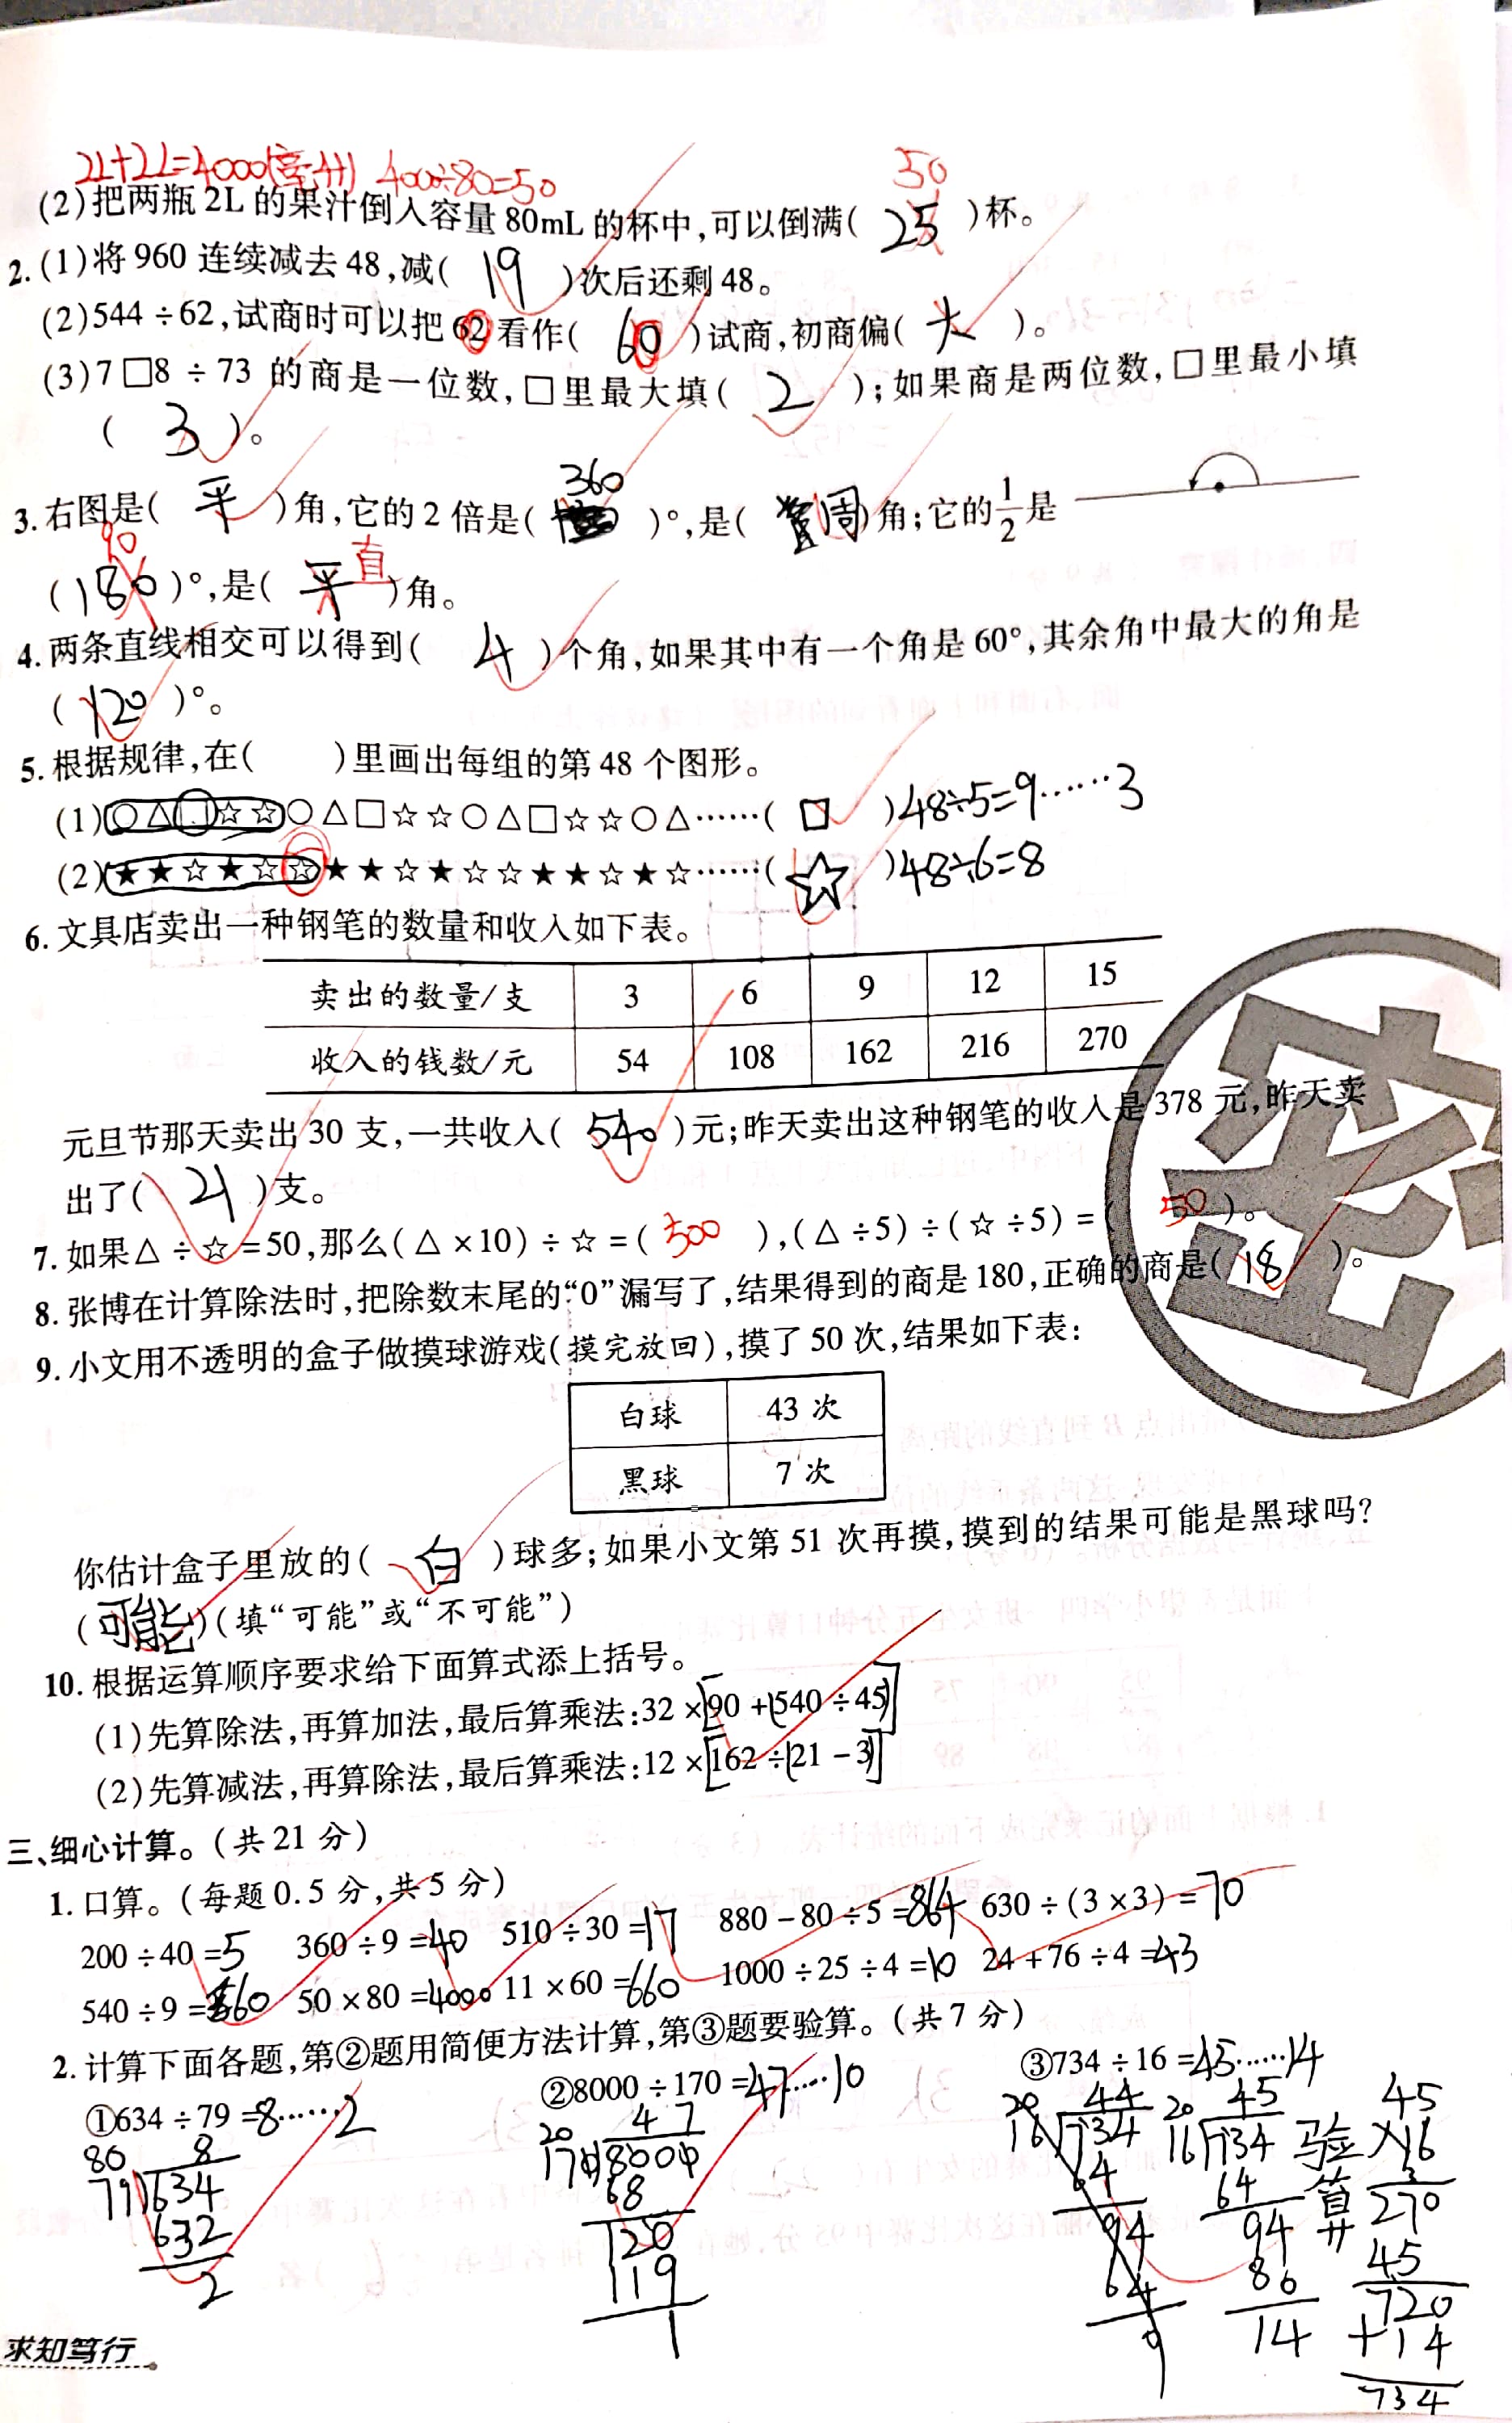 2L+2L=4000(毫升) 400÷80=50
50
(2)把两瓶2L的果汁倒入容量80mL的杯中,可以倒满( 25 )杯。
2.(1)将960连续减去48,减( 19 )次后还剩48。
(2)544÷62,试商时可以把62看作( 60 )试商,初商偏( 大 )。
(3)7□8÷73的商是一位数,□里最大填( 2 );如果商是两位数,□里最小填
( 3 )。
3.右图是( 平 )角,它的2倍是( 360 )°,是( 周 )角;它的1/2是
90 直
( 180 )°,是( 平 )角。
4.两条直线相交可以得到( 4 )个角,如果其中有一个角是60°,其余角中最大的角是
( 120 )°。
5.根据规律,在( )里画出每组的第48个图形。
(1)○△□☆☆○△□☆☆○△□☆☆○△……( □ )48÷5=9……3
(2)★★☆★☆☆★★☆★☆☆★★☆★☆……( ☆ )48÷6=8
6.文具店卖出一种钢笔的数量和收入如下表。
卖出的数量/支 3 6 9 12 15
收入的钱数/元 54 108 162 216 270
元旦节那天卖出30支,一共收入( 540 )元;昨天卖出这种钢笔的收入是378元,昨天卖
出了( 21 )支。
7.如果△÷☆=50,那么(△×10)÷☆=( 500 ),(△÷5)÷(☆÷5)=( 50 )。
8.张博在计算除法时,把除数末尾的“0”漏写了,结果得到的商是180,正确的商是( 18 )。
9.小文用不透明的盒子做摸球游戏(摸完放回),摸了50次,结果如下表:
白球 43次
黑球 7次
你估计盒子里放的( 白 )球多;如果小文第51次再摸,摸到的结果可能是黑球吗?
(可能)(填“可能”或“不可能”)
10.根据运算顺序要求给下面算式添上括号。
(1)先算除法,再算加法,最后算乘法:32×[90+(540÷45)]
(2)先算减法,再算除法,最后算乘法:12×[162÷(21-3)]
三、细心计算。(共21分)
1.口算。(每题0.5分,共5分)
200÷40=5 360÷9=40 510÷30=17 880-80÷5=864 630÷(3×3)=70
540÷9=60 50×80=4000 11×60=660 1000÷25÷4=10 24+76÷4=43
2.计算下面各题,第②题用简便方法计算,第③题要验算。(共7分)
①634÷79=8……2 ②8000÷170=47……10 ③734÷16=45……14
80 8 20 47 20 44 20 45 45
79 634 170 8000 16 734 16 734 验算 ×16
632 68 64 64 270
2 120 94 94 45
119 64 80 720
1 14 +14
734
求知笃行
密